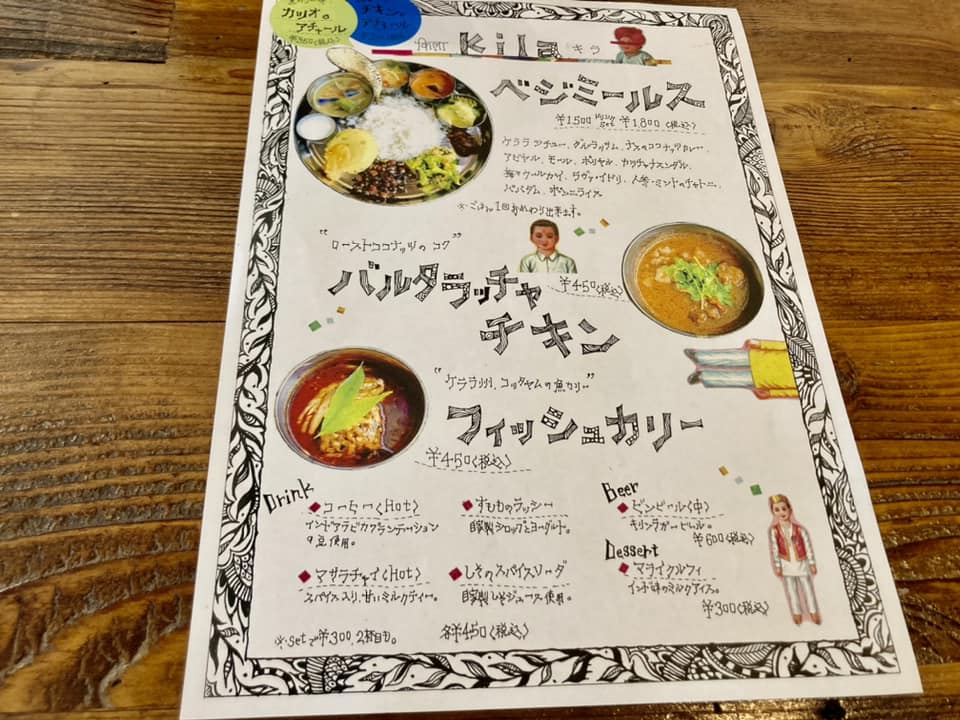 カツオの
アチャール
チキンの
アチャール
kila キラ
ベジミールス
¥1500 Drink set ¥1,800〈税込〉
ケララシチュー、ダルラッサム、ナスのココナッツカレー、
アビヤル、モール、ポリヤル、カッチャナスンダル、
梅ウールカイ、ラヴァイドリ、人参・ミントのチャトニ、
パパダム、ポンニライス
※ごはん1回おかわり出来ます。
"ローストココナッツのコク"
バルタラッチャ
チキン
¥450〈税込〉
"ケララ州、コッタヤムの魚カリー"
フィッシュカリー
¥450〈税込〉
Drink
コーヒー〈Hot〉
インドアラビカプランテーション
の豆使用。
すもものラッシー
自家製シロップとヨーグルト。
マサラチャイ〈Hot〉
スパイス入り、甘いミルクティー。
しそのスパイスソーダ
自家製しそジュース使用。
※setで¥300、2杯目も。
各¥450〈税込〉
Beer
ビンビール〈中〉
キリンラガービール。
¥600〈税込〉
Dessert
マライクルフィ
インド味のミルクアイス。
¥300〈税込〉